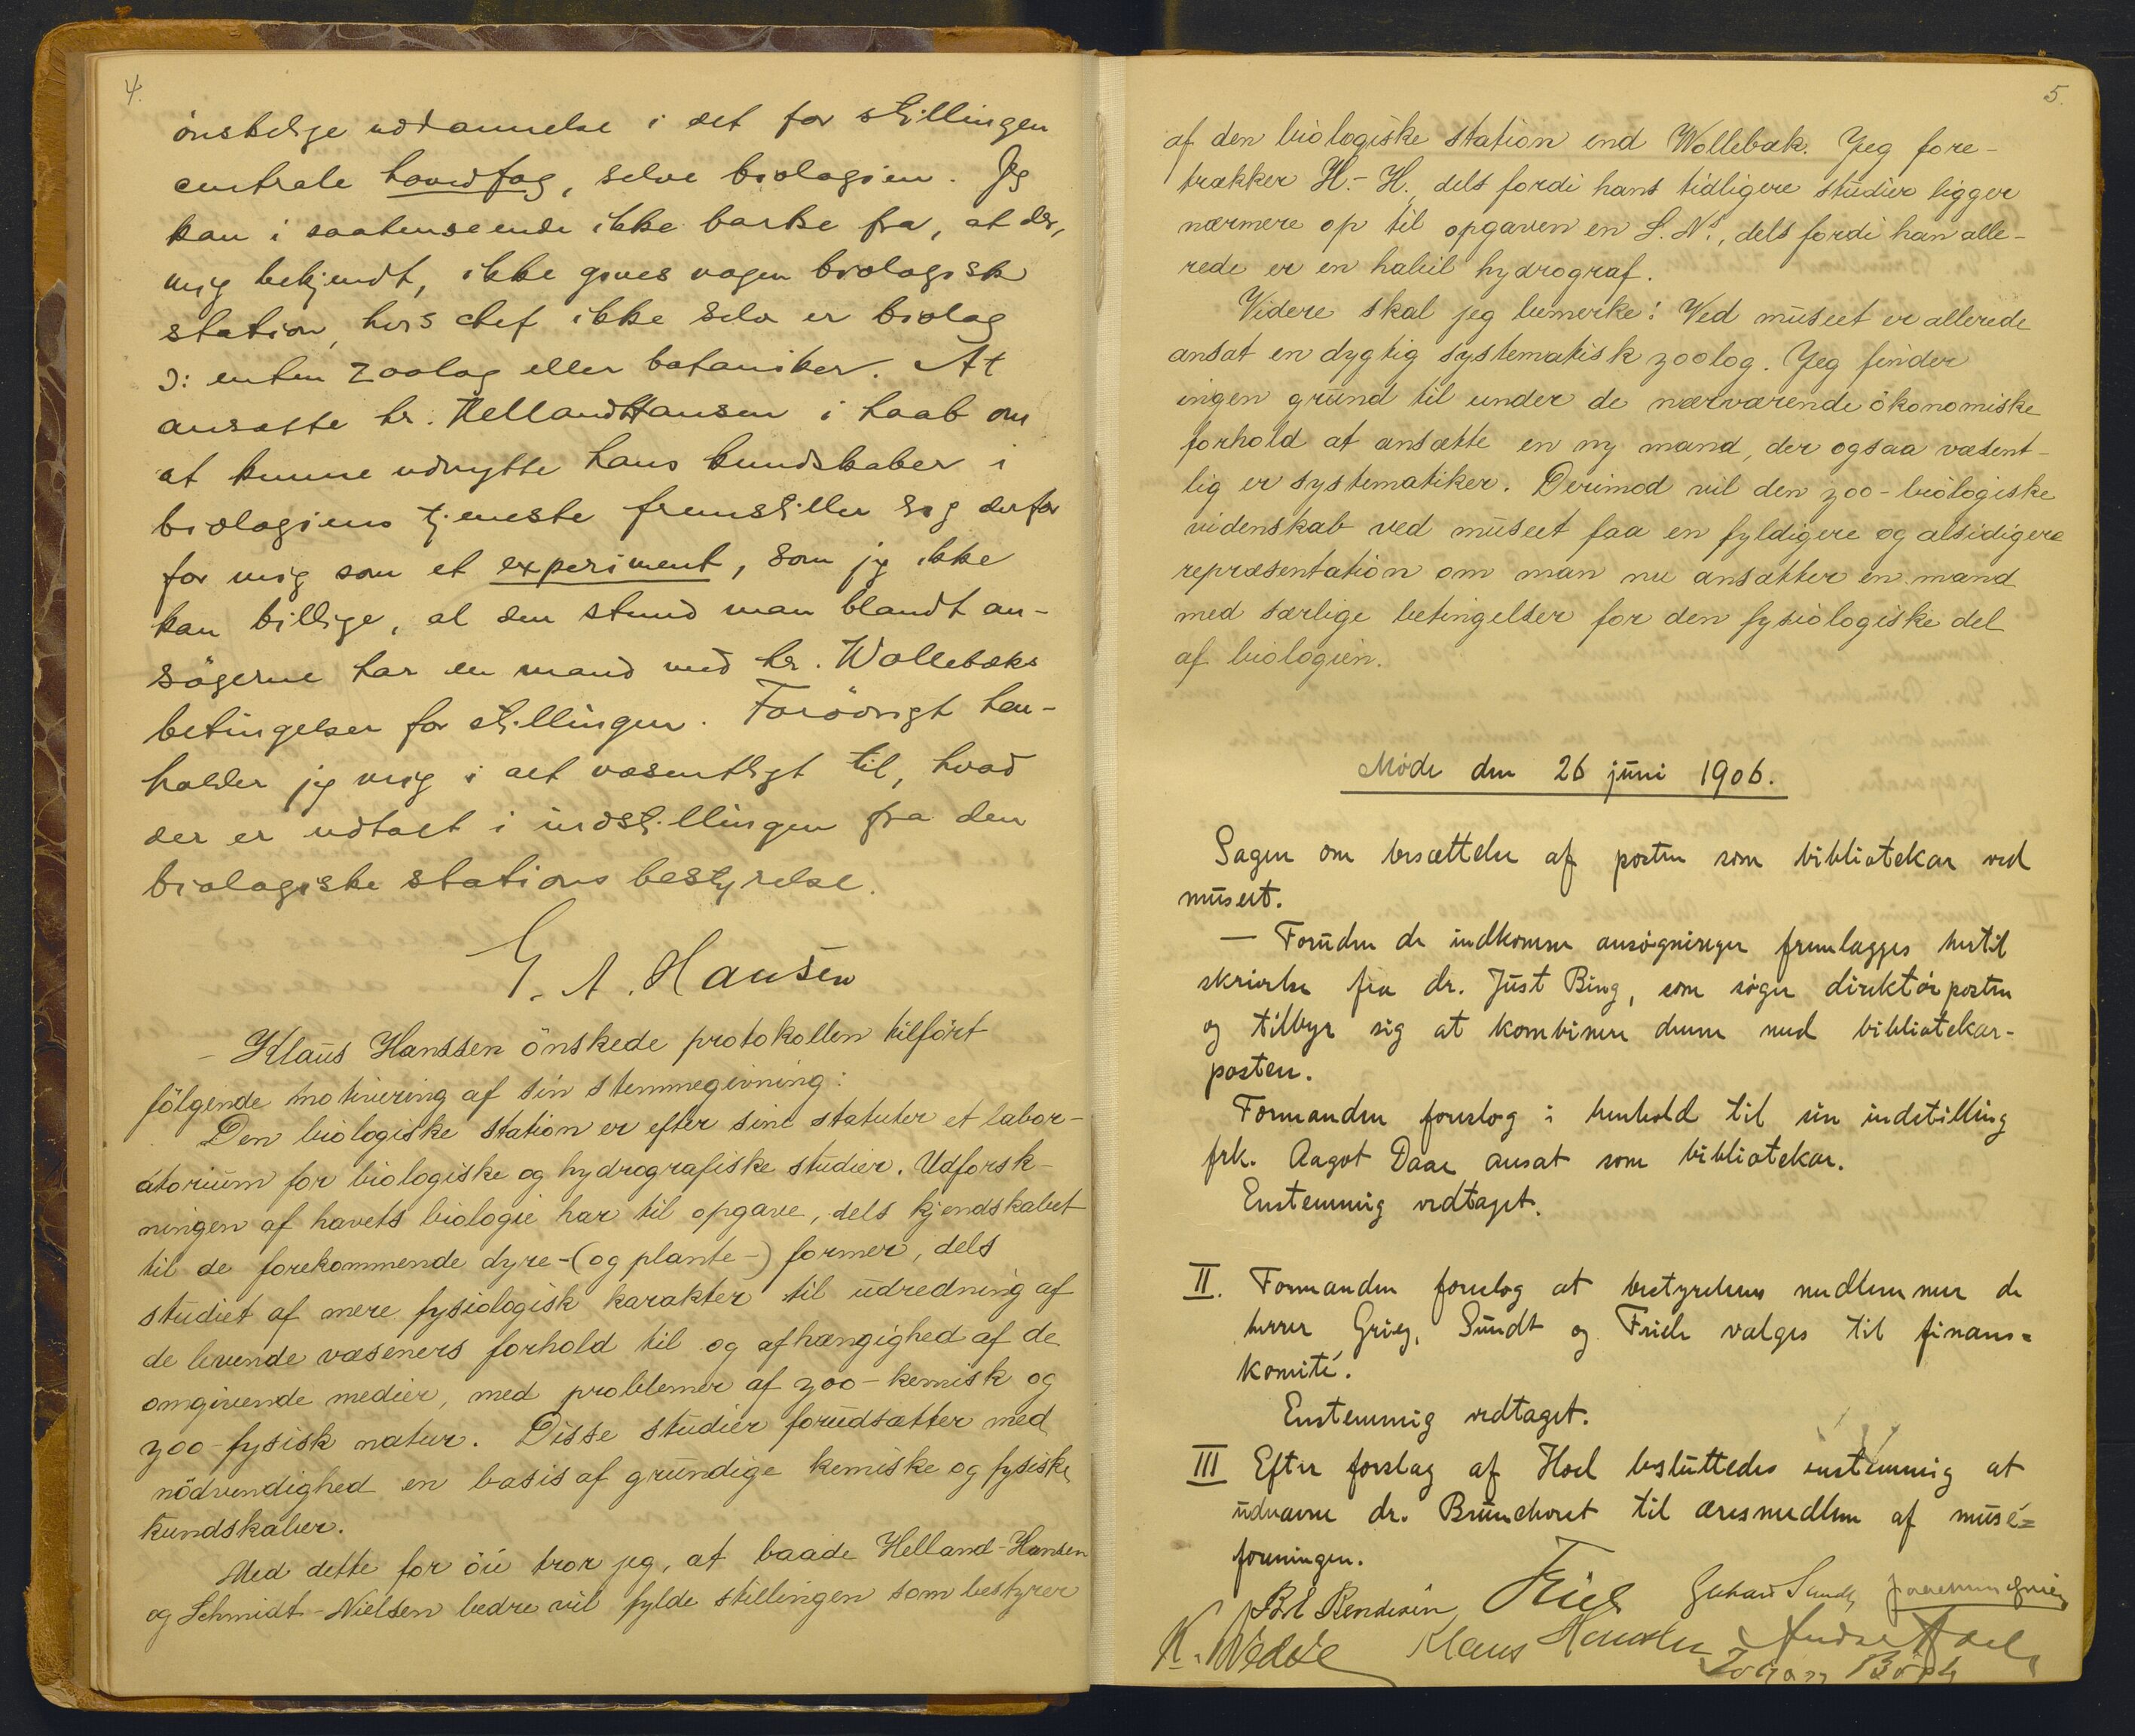 4.
önskelige uddannelse i det for stillingen
centrale hovedfag, selve biologien. Jeg
kan i saahenseende ikke bortse fra, at der,
mig bekjendt, ikke gives nogen biologisk
station, hvis chef ikke selv er biolog
ɔ: enten zoolog eller botaniker. At
ansætte hr. Helland Hansen i haab om
at kunne udnytte hans kundskaber i
biologiens tjeneste fremstiller sig derfor
for mig som et experiment, som jeg ikke
kan billige, al den stund man blandt an-
sögerne har en mand med hr. Wollebæks
betingelser for stillingen. Forövrigt hen-
holder jeg mig i det væsentligt til, hvad
der er udtalt i indstillingen fra den
biologiske stations bestyrelse.
G. A. Hansen
- Klaus Hanssen önskede protokollen tilfört
fölgende motivering af sin stemmegivning:
Den biologiske station er efter sine statuter et labor-
atorium for biologiske og hydrografiske studier. Udforsk-
ningen af havets biologie har til opgave, dels kjendskabet
til de forekommende dyre-(og plante-) former, dels
studiet af mere fysiologisk karakter til udredning af
de levende væseners forhold til og afhængighed af de
omgivende medier, med problemer af zoo-kemisk og
zoo-fysisk natur. Disse studier forudsætter med
nödvendighed en basis af grundige kemiske og fysiske
kundskaber.
Med dette for öie tror jeg, at baade Helland-Hansen
og Schmidt-Nielsen bedre vil fylde stillingen som bestyrer
5.
af den biologiske station end Wollebæk. Jeg fore-
trækker H.-H., dels fordi hans tidligere studier ligger
nærmere op til opgaven en S. N.s, dels fordi han alle-
rede er en habil hydrograf.
Videre skal jeg bemerke: Ved museet er allerede
ansat en dygtig systematisk zoolog. Jeg finder
ingen grund til under de nærværende ökonomiske
forhold at ansætte en ny mand, der ogsaa væsent-
lig er systematiker. Derimod vil den zoo-biologiske
videnskab ved museet faa en fyldigere og alsidigere
repræsentation om man nu ansætter en mand
med særlige betingelser for den fysiologiske del
af biologien.
Møde den 26 juni 1906.
Sagen om besættelse af posten som bibliotekar ved
museet.
— Foruden de indkomne ansøgninger fremlægges hertil
skrivelse fra dr. Just Bing, som søger direktørposten
og tilbyr sig at kombinere denne med bibliotekar-
posten.
Formanden foreslog i henhold til sin indstilling
frk. Aagot Daae ansat som bibliotekar.
Enstemmig vedtaget.
II. Formanden foreslog at bestyrelsens medlemmer de
herrer Grieg, Sundt og Friele vælges til finans=
komité.
Enstemmig vedtaget.
III Efter forslag af Hoel besluttedes enstemmig at
udnævne dr. Brunchorst til æresmedlem af musé=
foreningen.
Friele Gerhard Sundt Joachim Grieg
K. Wedde Klaus Hanssen Andr. Hoel
Johan Bögh